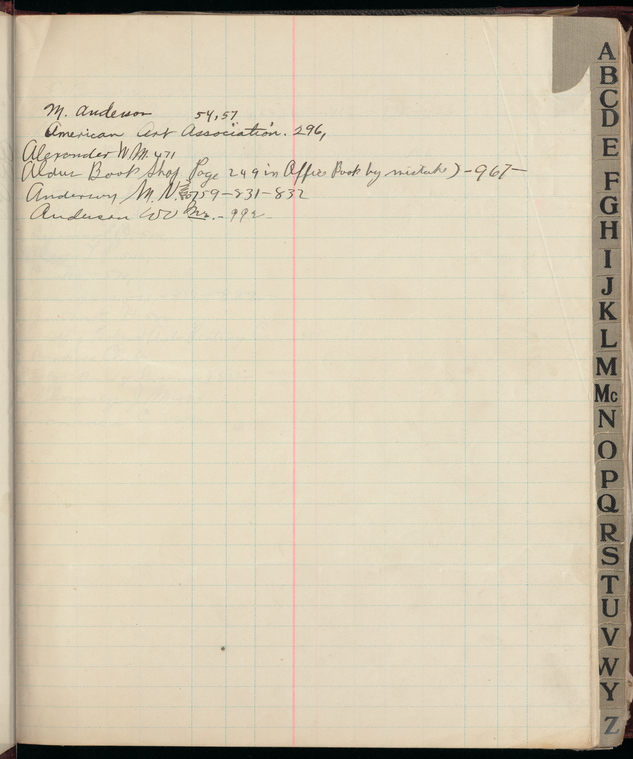 M. Anderson 54, 57
American Art Association. 296,
Alexander W. M. 471
Aldus Book Shop Page 249 in Office Book by mistake) - 967 -
Anderson M. N. 759-831-832
Anderson W Mr. - 992 -
A
B
C
D
E
F
G
H
I
J
K
L
M
Mc
N
O
P
Q
R
S
T
U
V
W
Y
Z